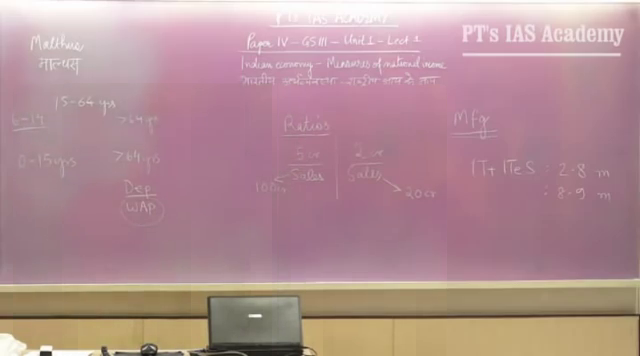 PT's IAS ACADEMY
PT's IAS Academy
Paper IV - GS III - Unit 1 - Lect 1
Indian economy - Measures of national income
भारतीय अर्थव्यवस्था - राष्ट्रीय आय के माप
Malthus
माल्थस
15-64 yrs
6-14
>64 yrs
0-15 yrs
>64 yrs
Dep
WAP
Ratios
5 cr
Sales
2 cr
Sales
20 cr
Mfg
IT+ ITeS : 2.8 m
: 8.9 m